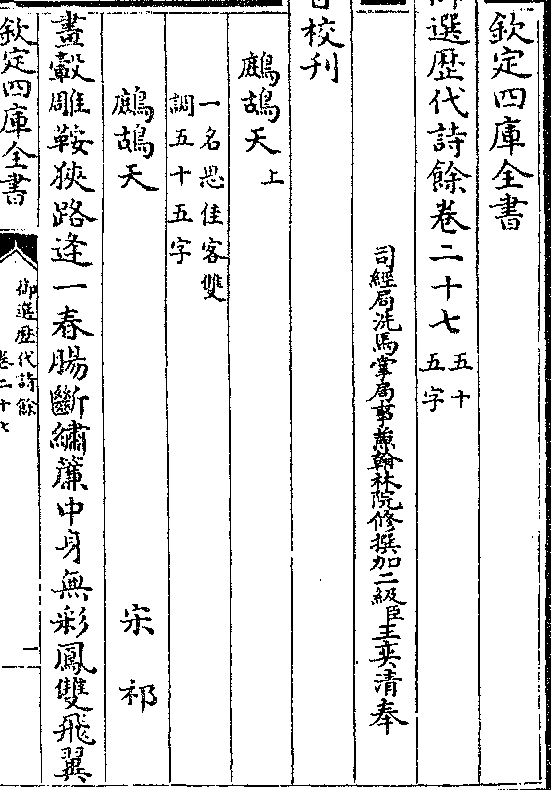 欽定四庫全書
御選歴代詩餘卷二十七 五十五字
司經局洗馬掌局事兼翰林院修撰加二級臣王奕清奉
旨校刋
鷓鴣天上
一名思佳客雙調五十五字
鷓鴣天
宋祁
畫轂雕鞍狹路逢一春腸斷繡簾中身無彩鳳雙飛翼
欽定四庫全書
御選歴代詩餘
卷二十七
一